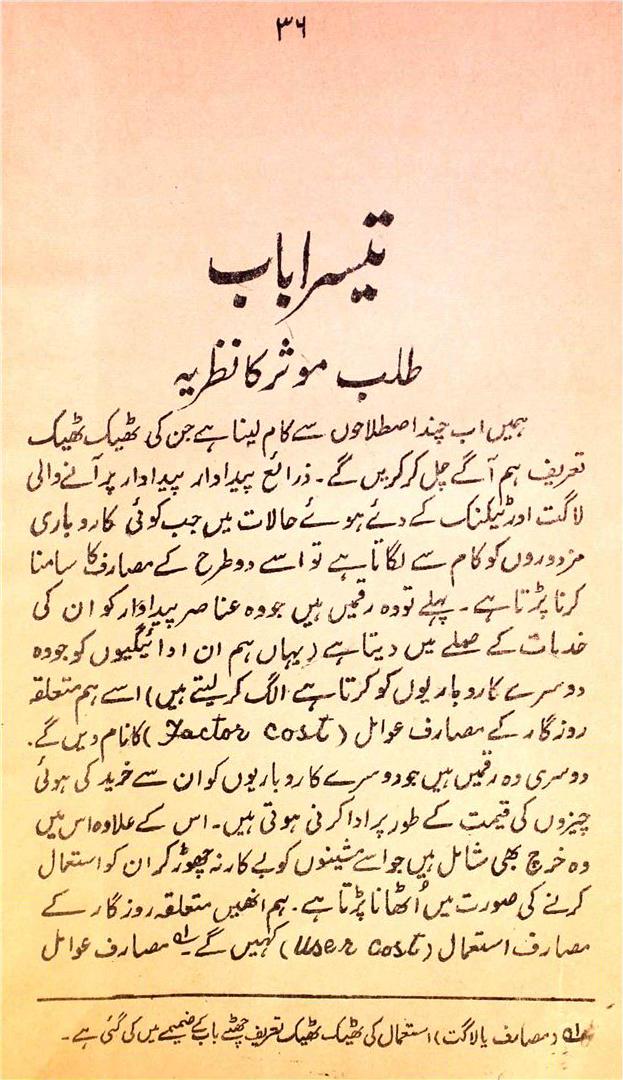 ۳۶
تیسرا باب
طلب موثر کا نظریہ
ہمیں اب چند اصطلاحوں سے کام لینا ہے جن کی ٹھیک ٹھیک
تعریف ہم آگے چل کر کریں گے۔ ذرائع پیداوار پیداوار پر آنے والی
لاگت اور ٹیکنک کے دئے ہوئے حالات میں جب کوئی کاروباری
مزدوروں کو کام سے لگاتا ہے تو اسے دو طرح کے مصارف کا سامنا
کرنا پڑتا ہے۔ پہلے تو وہ رقمیں ہیں جو وہ عناصر پیداوار کو ان کی
خدمات کے صلے میں دیتا ہے (یہاں ہم ان ادائیگیوں کو جو وہ
دوسرے کاروباریوں کو کرتا ہے الگ کر لیتے ہیں) اسے ہم متعلقہ
روزگار کے مصارف عوامل (Factor cost) کا نام دیں گے۔
دوسری وہ رقمیں ہیں جو دوسرے کاروباریوں کو ان سے خرید کی ہوئی
چیزوں کی قیمت کے طور پر ادا کرنی ہوتی ہیں۔ اس کے علاوہ اس میں
وہ خرچ بھی شامل ہیں جو اسے مشینوں کو بے کار نہ چھوڑ کر ان کو استعمال
کرنے کی صورت میں اُٹھانا پڑتا ہے۔ ہم انھیں متعلقہ روزگار کے
مصارف استعمال (User cost) کہیں گے۔ ۱؎ مصارف عوامل
۱؎ (مصارف یا لاگت) استعمال کی ٹھیک ٹھیک تعریف چھٹے باب کے ضمیمے میں کی گئی ہے۔